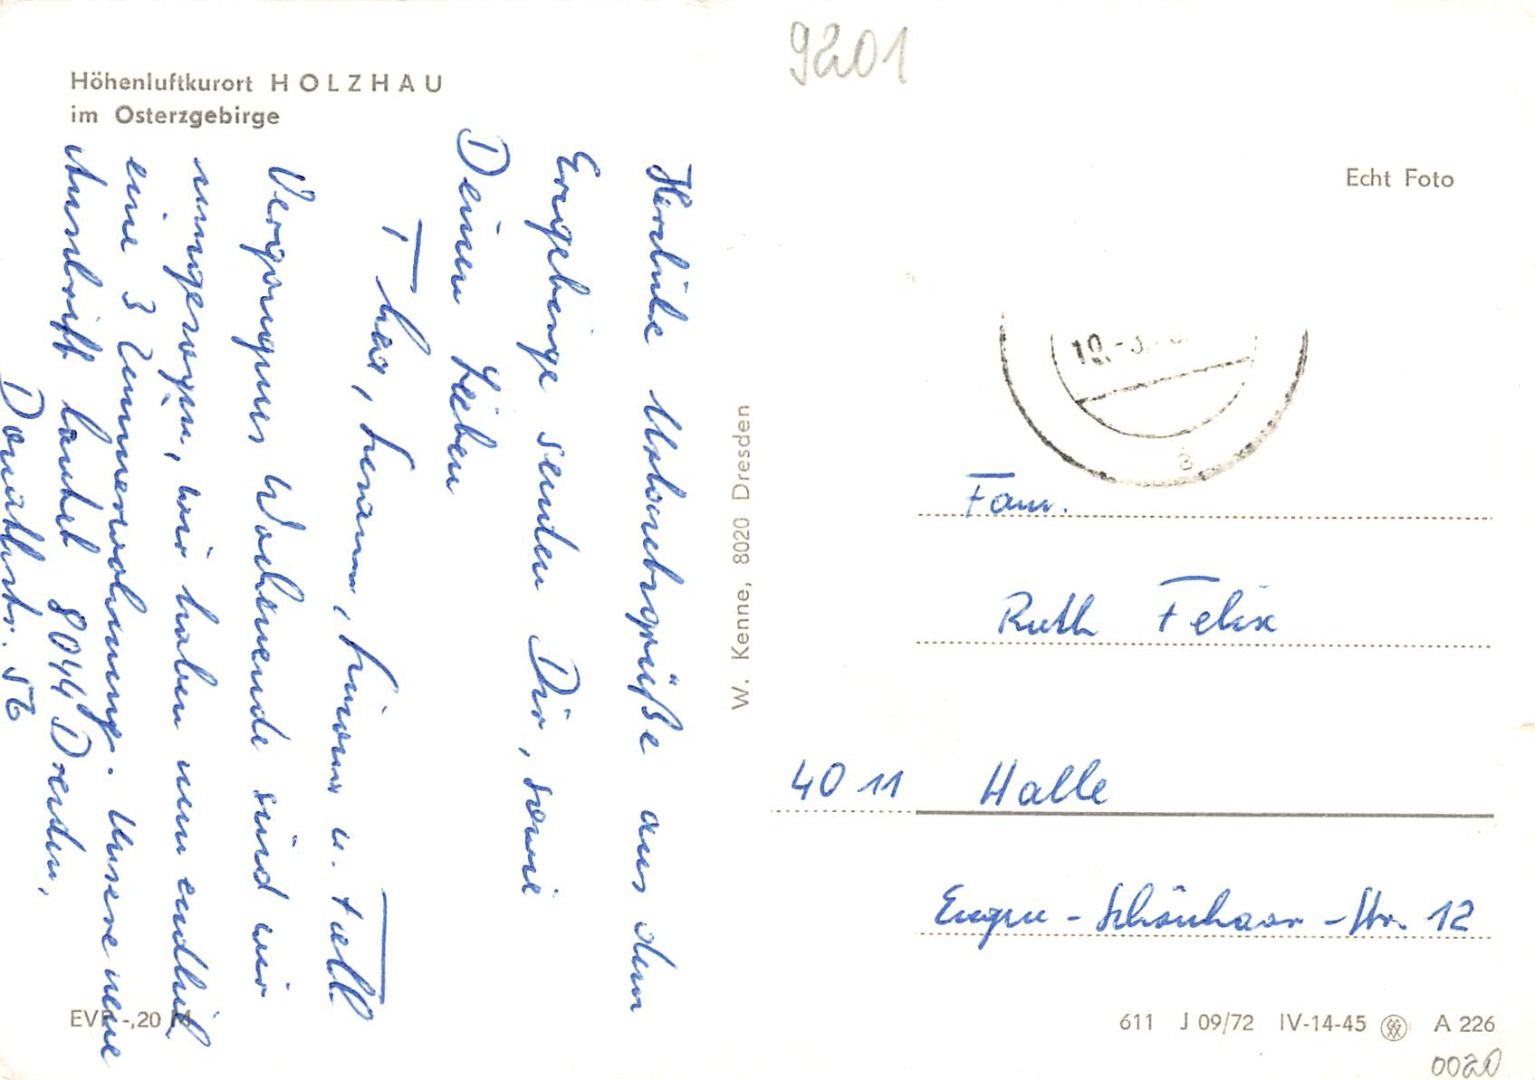 Höhenluftkurort HOLZHAU
im Osterzgebirge
Herzliche Urlaubsgrüße aus dem
Erzgebirge senden Dir, sowie
Deinen Lieben
u. Falk
Vergangenes Wochenende sind wir
umgezogen, wir haben nun endlich
eine 3 Zimmerwohnung. Unsere neue
Anschrift lautet 8044 Dresden,
Donathstr. 56
EVP -,20 M
W. Kenne, 8020 Dresden
9201
Echt Foto
19.-3.
a
Fam.
Ruth Felix
4011 Halle
Eugen-Schönhaar-Str. 12
611 J 09/72 IV-14-45 A 226
0020